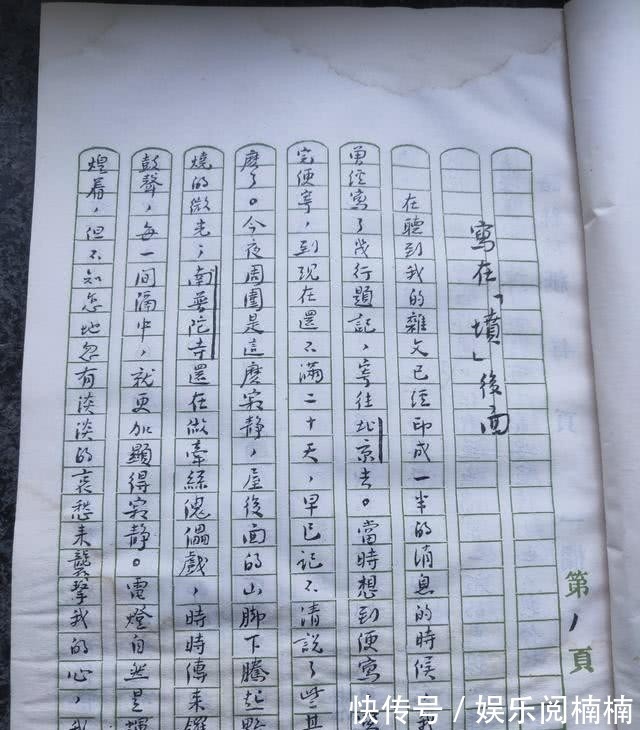 寫在「墳」後面
在聽到我的雜文已經印成一半的消息的時候，我
曾經寫了幾行題記，寄往北京去。當時想到便寫
完便寄，到現在還不滿二十天，早已記不清說了些甚
麼了。今夜周圍是這麼寂靜，屋後面的山腳下騰起野
燒的微光；南普陀寺還在做牽絲傀儡戲，時時傳來鑼
鼓聲，每一間隔中，就更加顯得寂靜。電燈自然是輝
煌着，但不知怎地忽有淡淡的哀愁來襲擊我的心，我
第1頁
快传号/娱乐阅楠楠